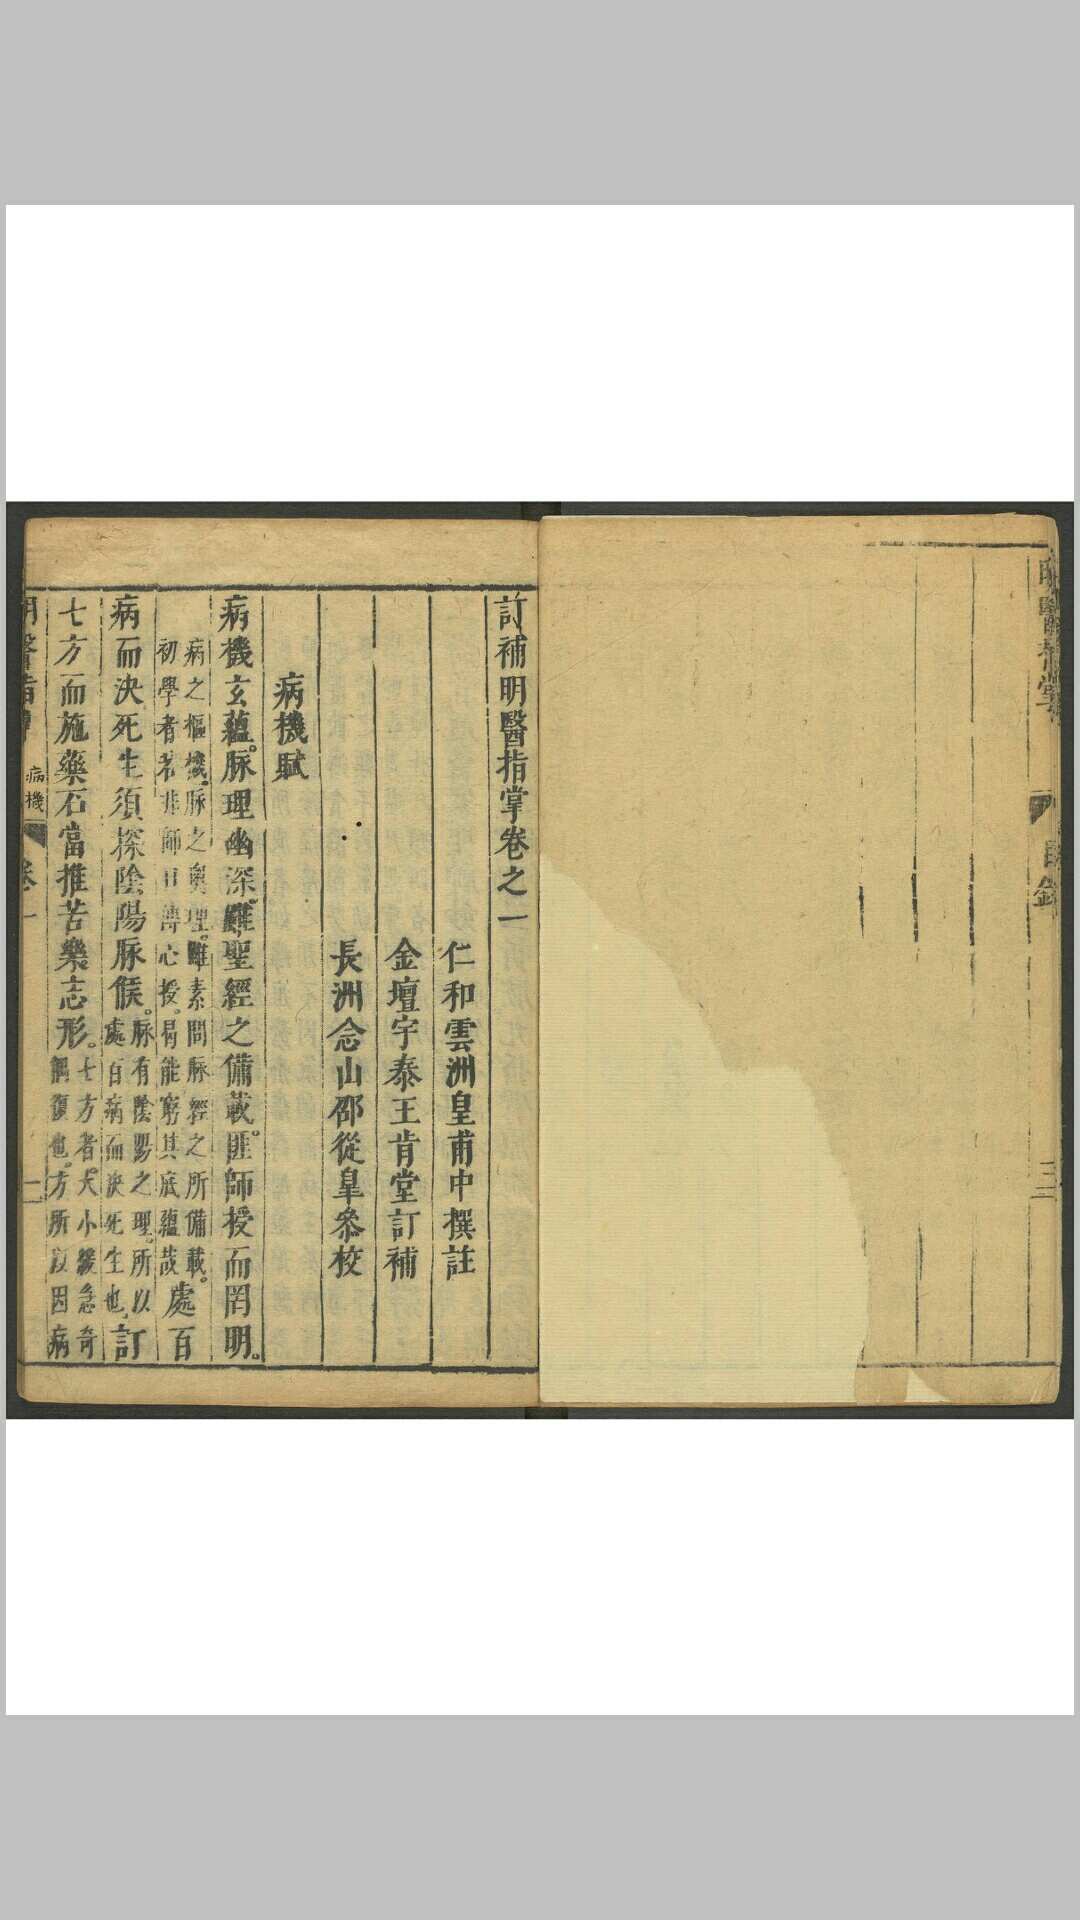 目錄
三
訂補明醫指掌卷之一
仁和雲洲皇甫中撰註
金壇宇泰王肯堂訂補
長洲念山邵從皐叅校
病機賦
病機玄蘊。脉理幽深。雖聖經之備載。匪師授而罔明。
病之樞機。脉之奧理。雖素問脉經之所備載。
初學者若非師口傳心授。曷能窮其底蘊哉
處百
病而決死生須探陰陽脉候。
脉有陰陽之理。所以
處百病而決死生也
訂
七方而施藥石當推苦樂志形。
七方者。大小緩急奇
偶復也。方所以因病
明醫指掌
病機
卷一
一